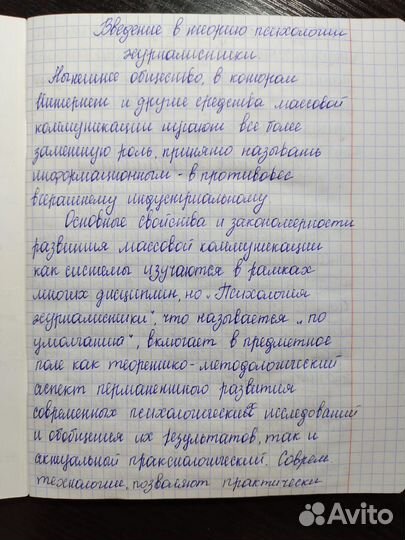 Введение в теорию психологии
журналистики.
Нынешнее общество, в котором
Интернет и другие средства массовой
коммуникации играют все более
заметную роль, принято называть
информационным - в противовес
вчерашнему индустриальному.
Основные свойства и закономерности
развития массовой коммуникации
как системы изучаются в рамках
многих дисциплин, но „Психология
журналистики", что называется „по
умолчанию", включает в предметное
поле как теоретико-методологический
аспект перманентного развития
современных психологических исследований
и обобщения их результатов, так и
актуальный праксиологический. Соврем.
технологии, позволяют практически
Avito